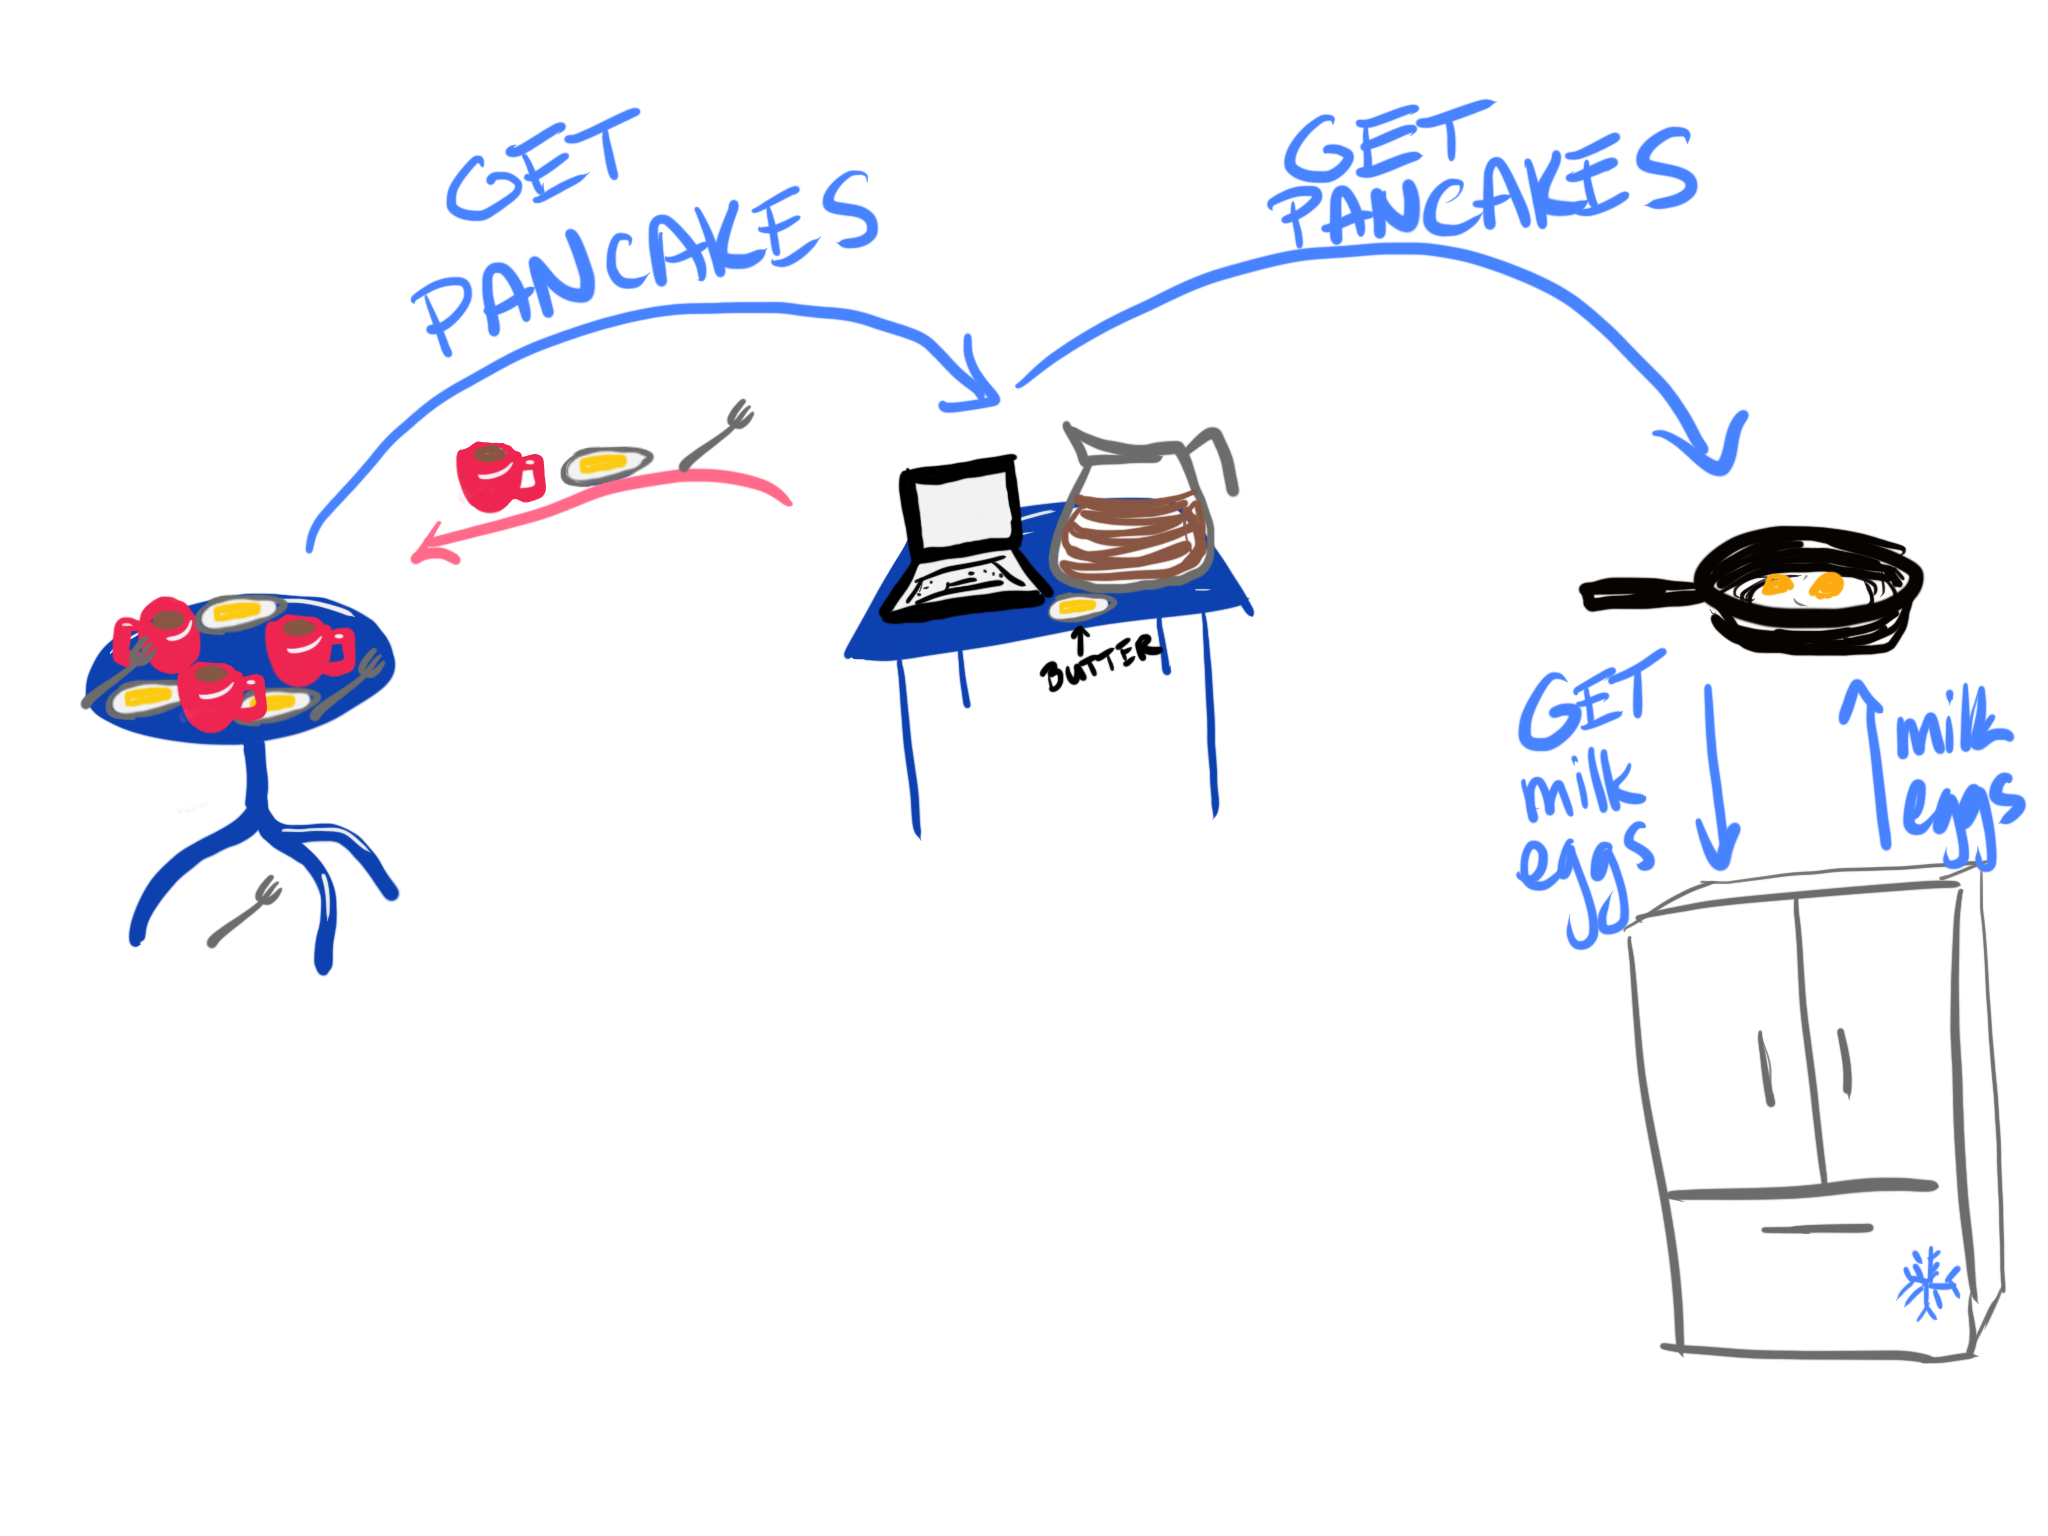 GET
PANCAKES
GET
PANCAKES
BUTTER
GET
milk
eggs
milk
eggs